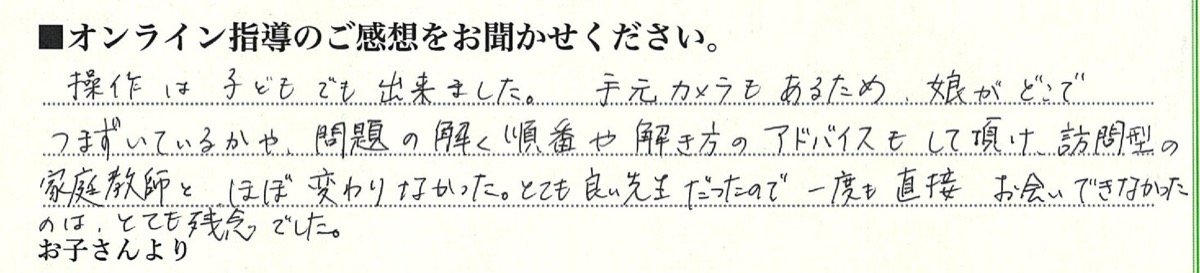 ■オンライン指導のご感想をお聞かせください。
操作は子どもでも出来ました。 手元カメラもあるため、娘がどこで
つまずいているかや、問題の解く順番や解き方のアドバイスもして頂け、訪問型の
家庭教師と、ほぼ変わりなかった。とても良い先生だったので一度も直接 お会いできなかった
のは、とても残念でした。
お子さんより